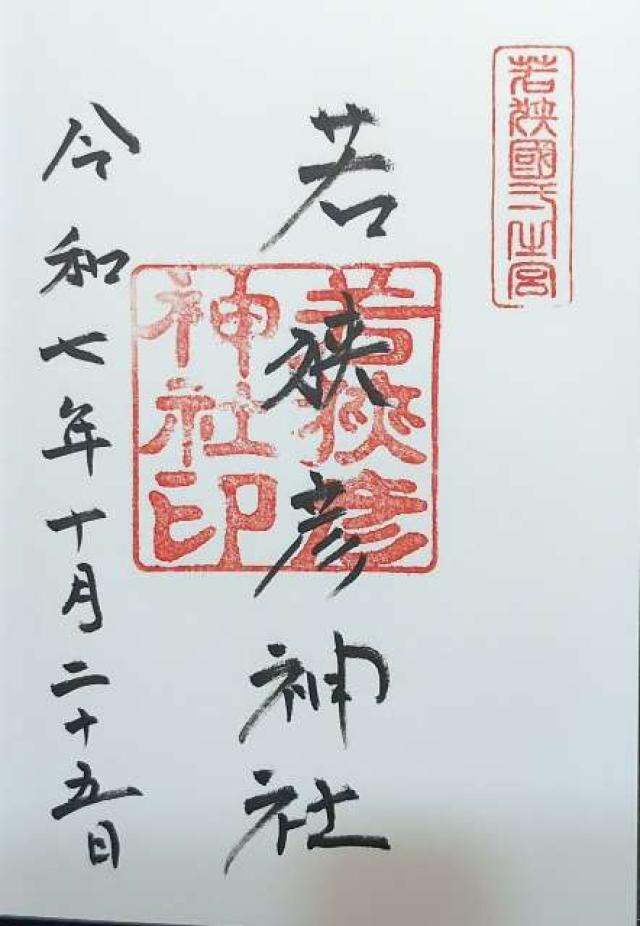 若狭國一之宮
若狭彦神社
若狭彦
神社印
令和七年十月二十五日